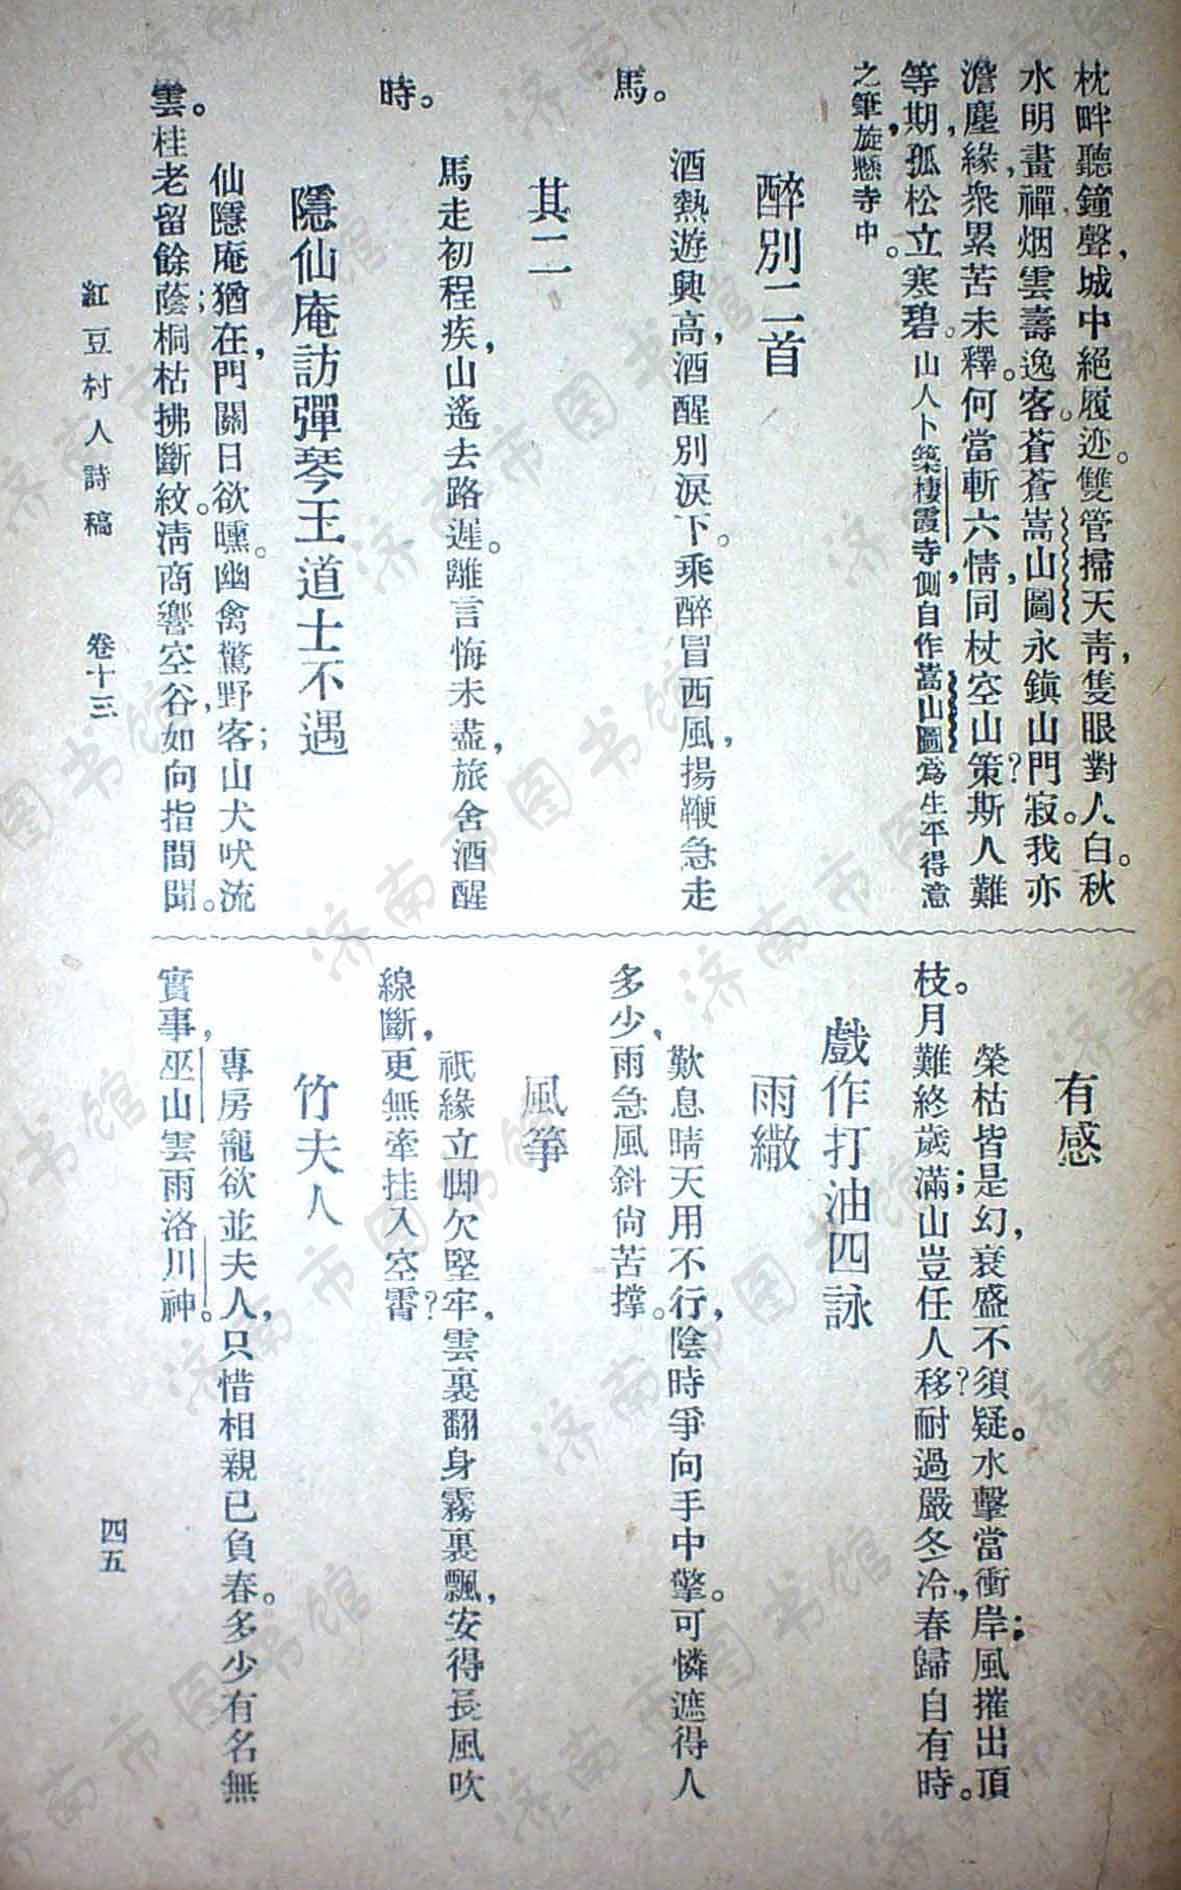 枕畔聽鐘聲，城中絕履迹。雙管掃天青，隻眼對人白。秋
水明畫禪，烟雲壽逸客。蒼蒼嵩山圖，永鎭山門寂。我亦
澹塵緣，衆累苦未釋。何當斬六情，同杖空山策？斯人難
等期，孤松立寒碧。山人卜築棲霞寺側，自作嵩山圖，爲生平得意
之筆，旋懸寺中。
醉別二首
酒熱遊興高，酒醒別淚下。乘醉冒西風，揚鞭急走
馬。
其二
馬走初程疾，山遙去路遲。離言悔未盡，旅舍酒醒
時。
隱仙庵訪彈琴王道士不遇
仙隱庵猶在，門關日欲曛。幽禽驚野客；山犬吠流
雲。桂老留餘蔭；桐枯拂斷紋。淸商響空谷，如向指間聞。
紅豆村人詩稿 卷十三
有感
榮枯皆是幻，衰盛不須疑。水擊當衝岸；風摧出頂
枝。月難終歲滿；山豈任人移？耐過嚴冬冷，春歸自有時。
戲作打油四詠
雨繖
歎息晴天用不行，陰時爭向手中擎。可憐遮得人
多少，雨急風斜尙苦撑。
風筝
祇緣立脚欠堅牢，雲裏翻身霧裏飄，安得長風吹
線斷，更無牽挂入空霄？
竹夫人
專房寵欲並夫人，只惜相親已負春。多少有名無
實事，巫山雲雨洛川神。
四五
济南市图书馆